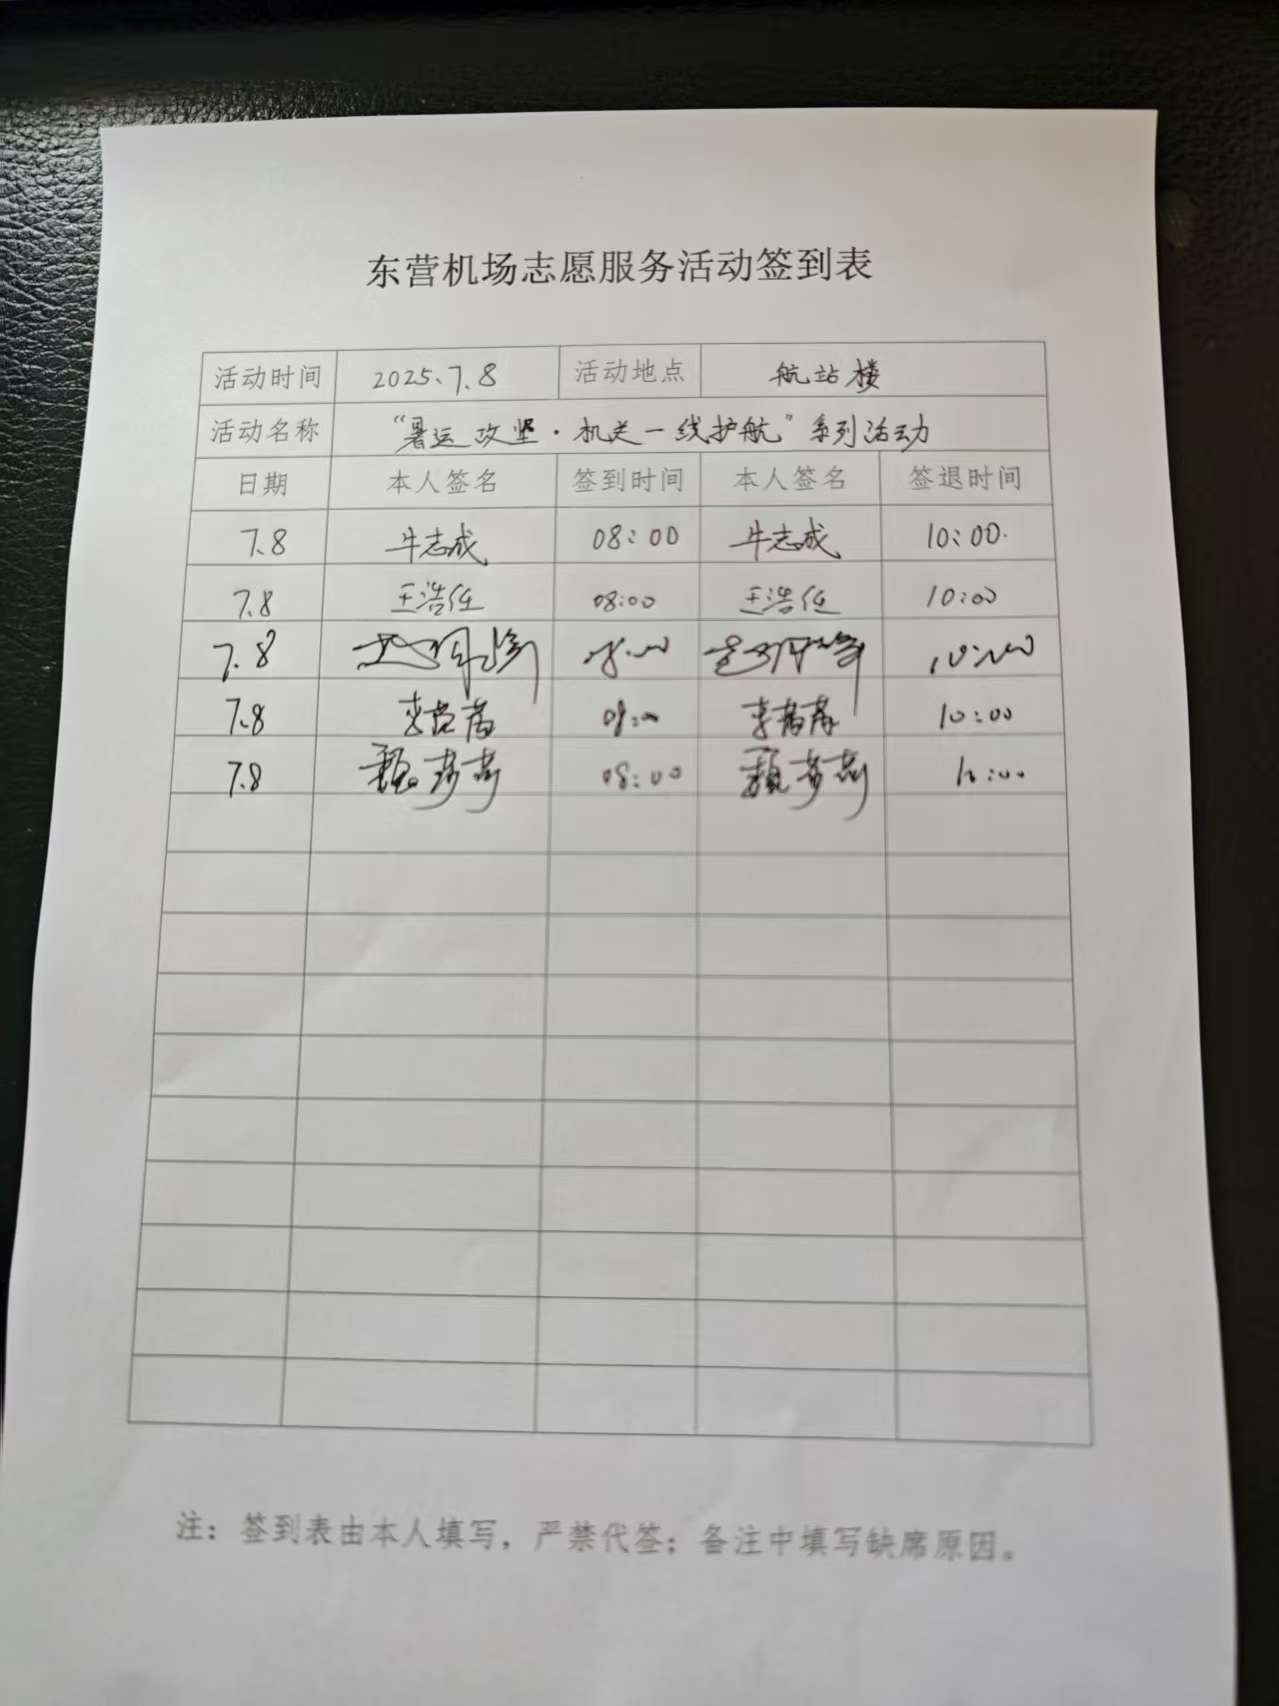 东营机场志愿服务活动签到表
活动时间 2025、7.8 活动地点 航站楼
活动名称 “暑运攻坚·机关一线护航”系列活动
日期 本人签名 签到时间 本人签名 签退时间
7.8 牛志成 08:00 牛志成 10:00
7.8 王浩任 08:00 王浩任 10:00
7.8 10:00
7.8 08:00 10:00
7.8 08:00 10:00
注：签到表由本人填写，严禁代签；备注中填写缺席原因。